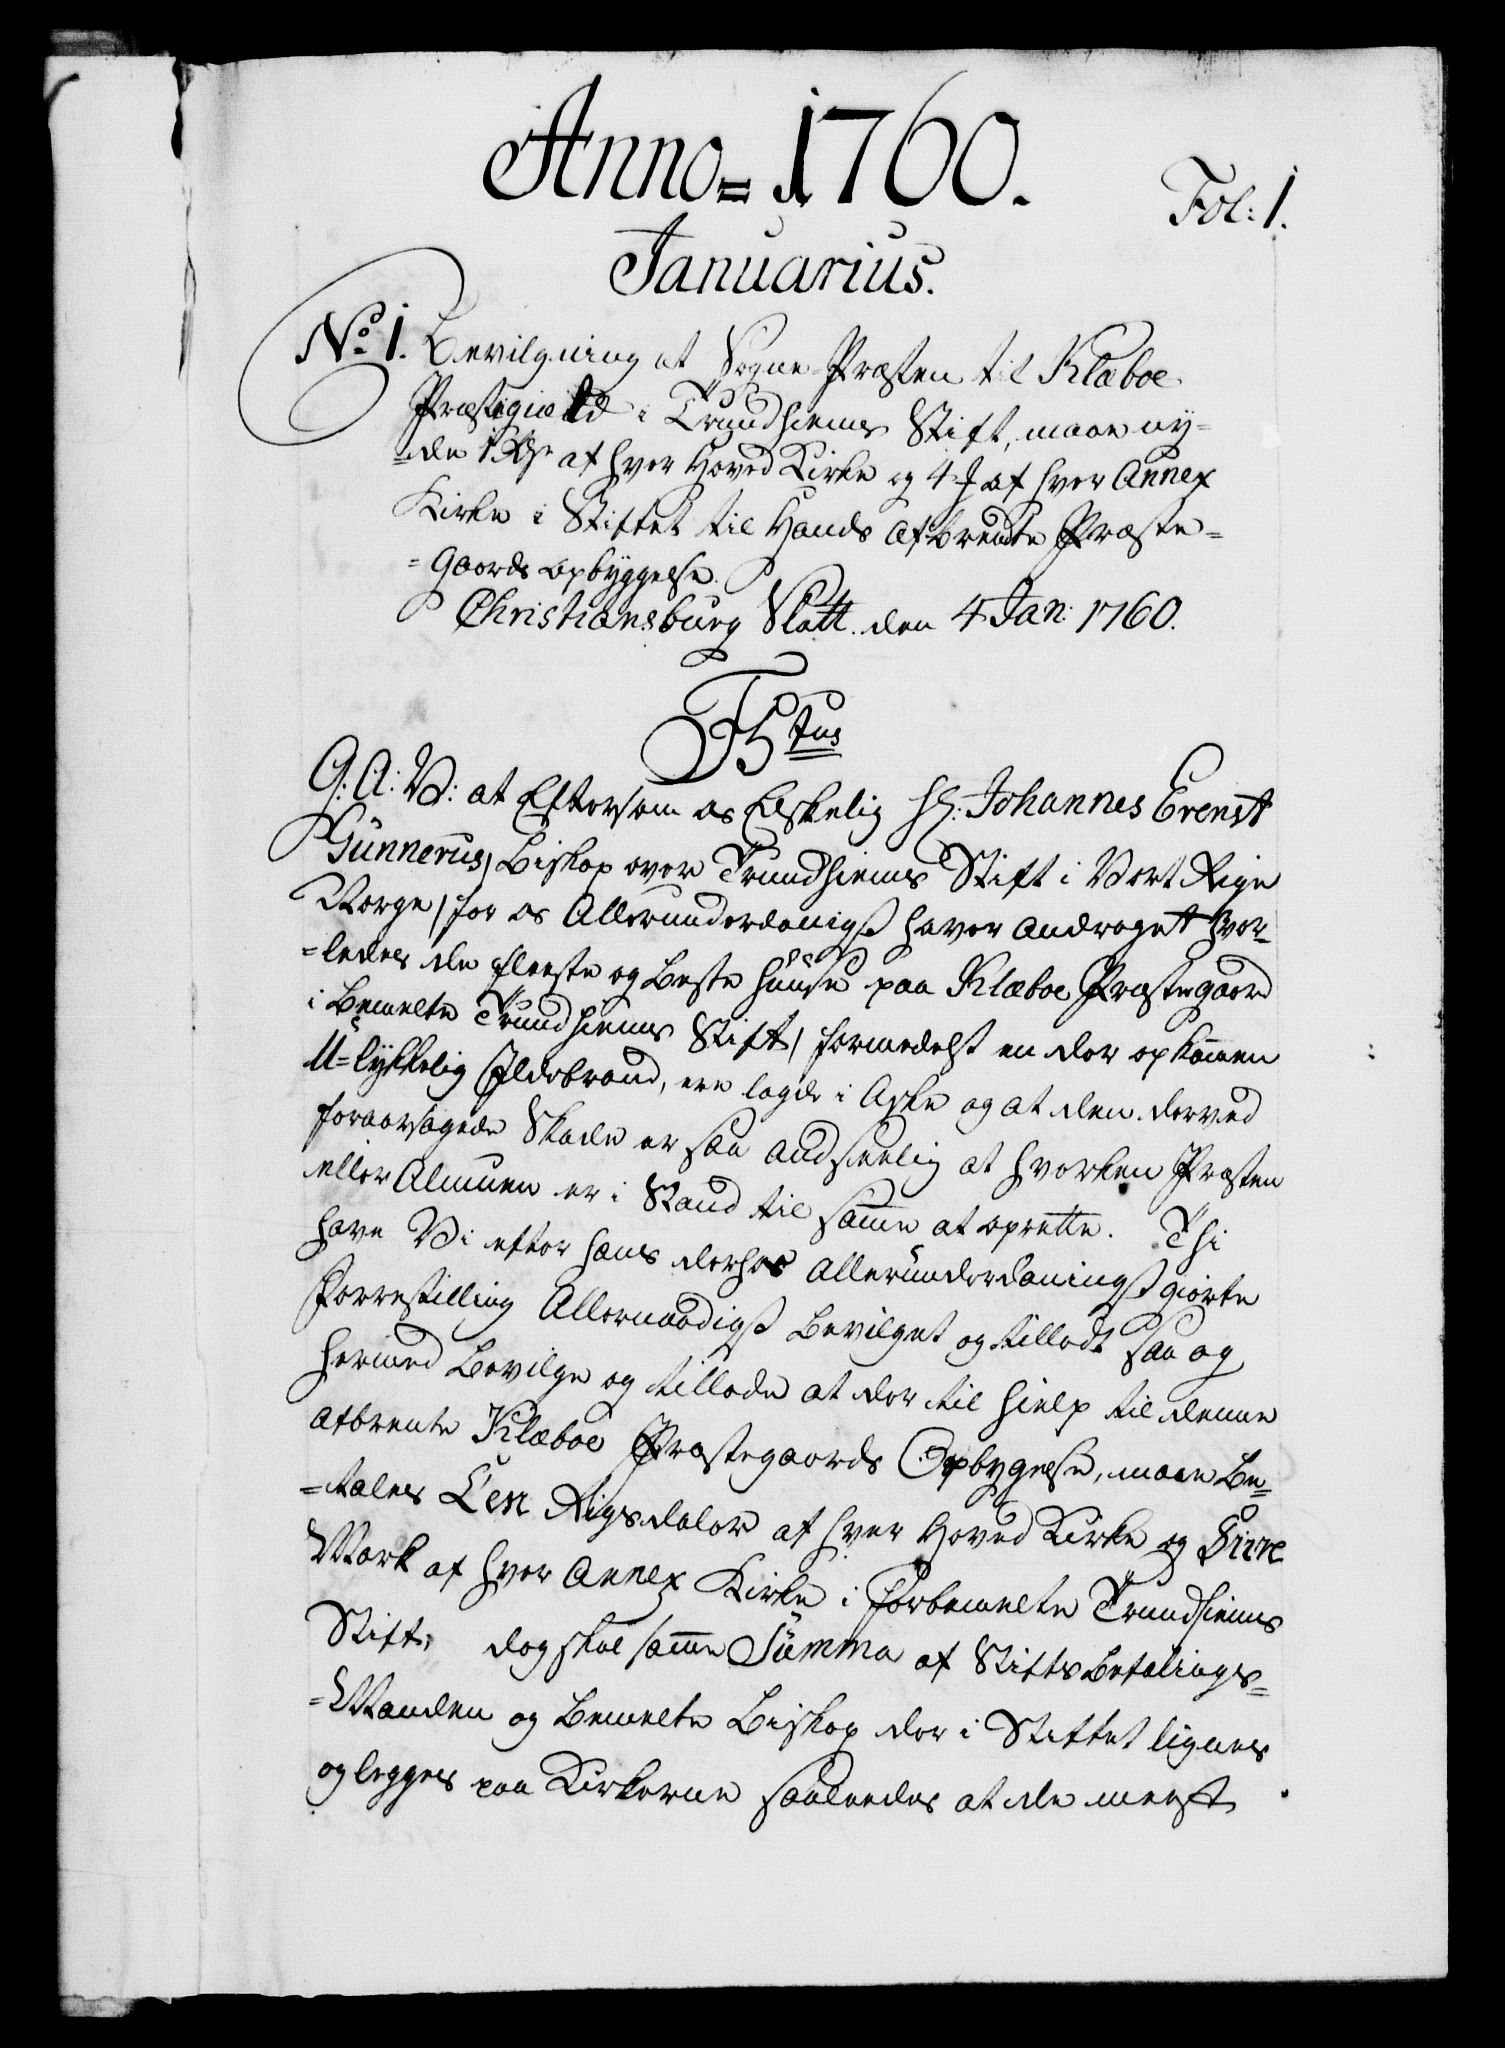 Anno= 1760.
Fol: 1.
Januarius.
No 1. Bevilgning at Sogne-Præsten til Klæboe
Præstegield i Trundhiems Stift, maae ny=
=de 1 Rdr af hver Hoved Kirke og 4 af hver Annex
Kirke i Stiftet til Hands Afbrendte Præste=
=Gaards Opbyggelse.
Christiansburg Slott. den 4 Jan: 1760.
F5tus
G: A: V: at Eftersom os Elskelig Hr: Johannes Erenst
Gunnerus/ Biskop over Trundhiems Stift i Vort Rige
Norge/ for os Allerunderdanigst haver andraget hvor=
=ledes de fleeste og beste Huuse paa Klæboe Præstegaard
i bemelte Trundhiems Stift/ formedelst en der opkommen
U=lykkelig Ildebrand, ere lagde i Aske og at den derved
foraarsagede Skade er saa andseelig at hverken Præsten
eller Almuen er i Stand til samme at oprette. Thi
have Vi efter hans derhos allerunderdanigst giorte
Forrestilling Allernaadigst bevilget og tilladt saa og
hermed bevilge og tillade at der til Hielp til denne
afbrente Klæboe Præstegaards Opbygelse, maae be=
=tales Een Rigsdaler af hver Hoved Kirke og Fiire
Mark af hver Annex Kirke i forbemelte Trundhiems
Stift, dog skal samme Summa af Stifts Befalings=
=Manden og bemelte Biskop der i Stiftet lignes
og legges paa Kirkerne saaledes at de meest